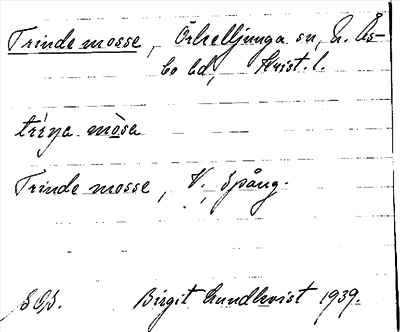 Trinde mosse, Örkelljunga sn, N. Ås-
bo hd, Krist. l.
trina mosa
Trinde mosse, V. Spång.
Birgit Lundkvist 1939.